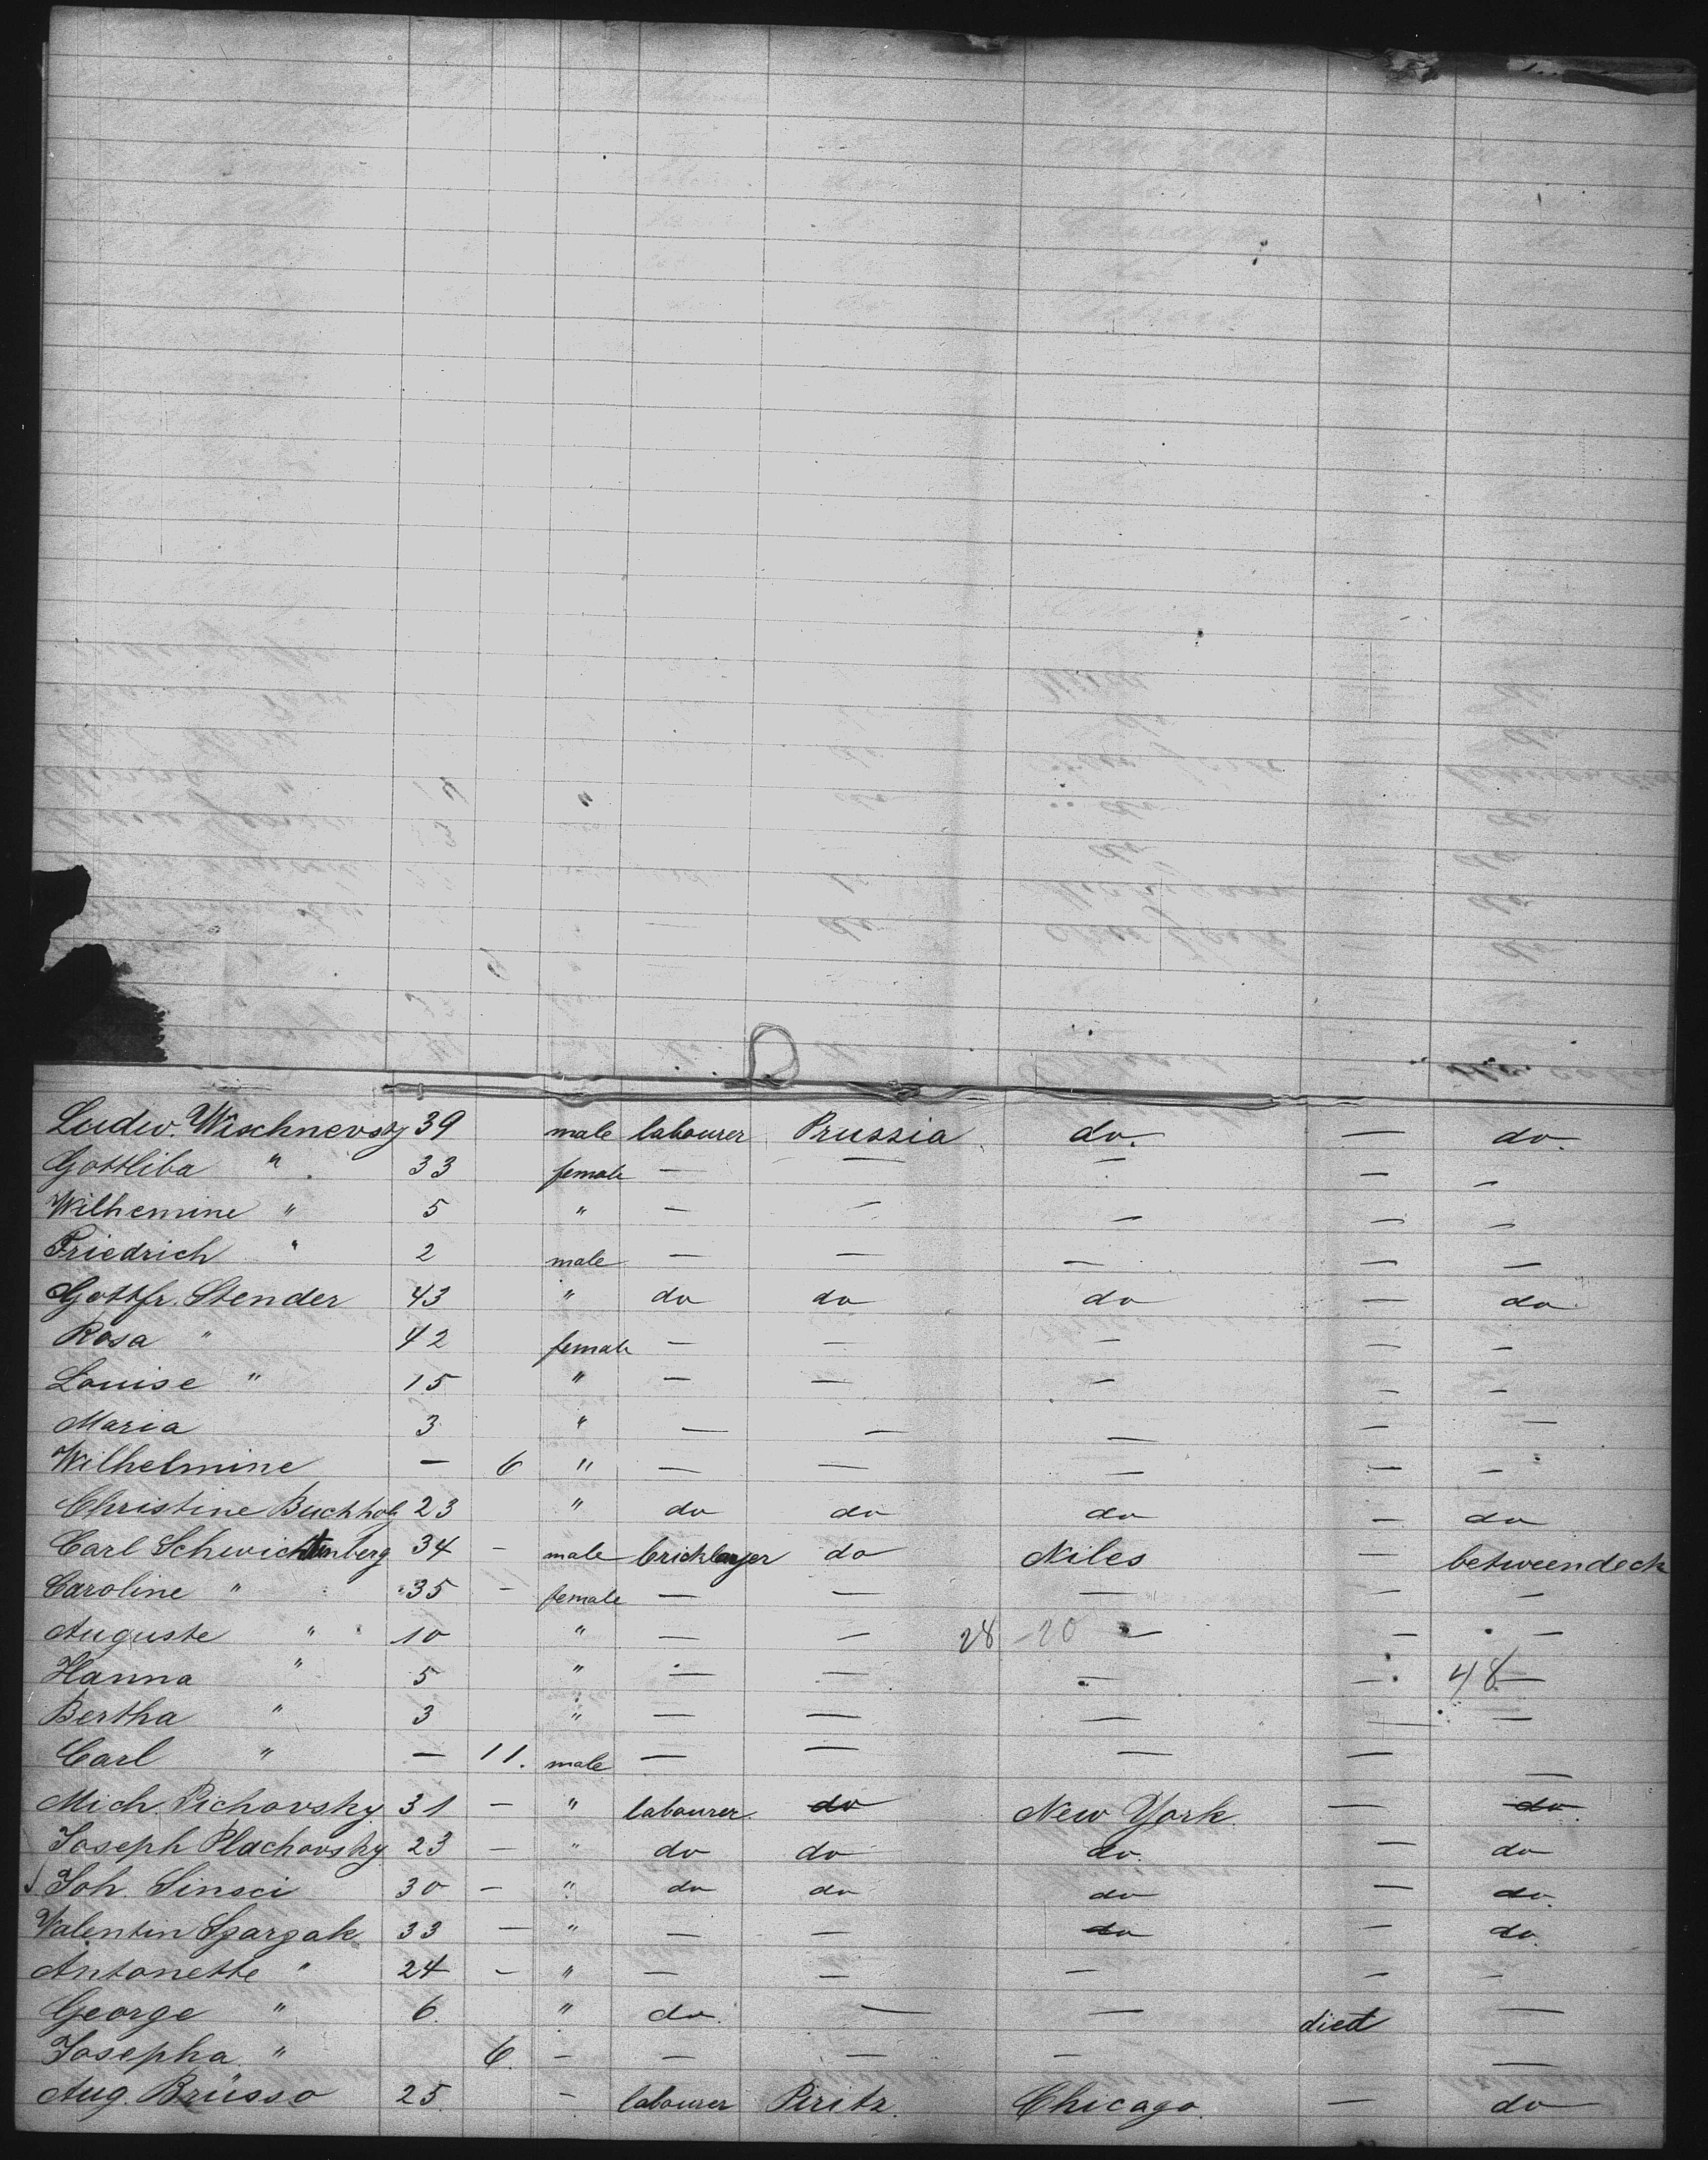 Ludw. Wischnevsky 39 male labourer Prussia do. — do.
Gottliba " 33 female — — — — —
Wilhemine " 5 " — — — — —
Friedrich " 2 male — — — — —
Gottfr. Stender 43 " do do do — do
Rosa " 42 female — — — — —
Louise " 15 " — — — — —
Maria 3 " — — — — —
Wilhelmine — 6 " — — — — —
Christine Buchholz 23 " do do do — do
Carl Schwichtenberg 34 — male bricklayer do Niles — betweendeck
Caroline " 35 — female — — — — —
Auguste " 10 " — — 28 -20 — — —
Hanna " 5 " — — — — 48 —
Bertha " 3 " — — — — —
Carl " — 11. male — — — — —
Mich. Pichovsky 31 — " labourer do New York — do
Joseph Plachovsky 23 — " do do do. — do
Joh. Sinsci 30 — " do do do — do.
Valentin Szarzak 33 — " — — do — do.
Antonette " 24 — " — — — — —
George " 6. " do. — — died —
Josepha " 6. — — — — —
Aug. Brüsso 25 — labourer Piritz. Chicago. — do